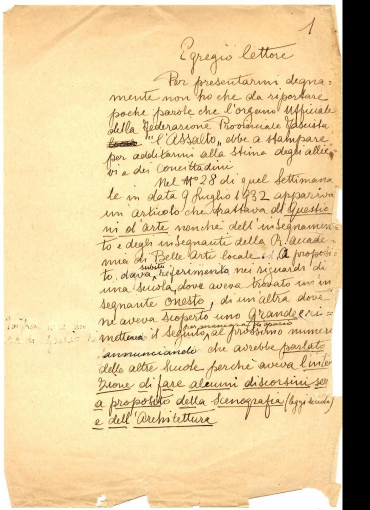 1
Egregio lettore
Per presentarmi degna-
mente non ho che da riportare
poche parole che l'organo ufficiale
della Federazione Provinciale Fascista
"l'Assalto" ebbe a stampare
per additarmi alla stima degli allie-
vi e dei concittadini
Nel N° 28 di quel Settimana
le in data 9 luglio 1932 appariva
un articolo che trattava di Questio
ni d'arte nonché dell'insegnamen-
to e degli insegnanti della R. accade-
mia di Belle Arti locale. A proposi-
to dava subito riferimento nei riguardi di
una scuola, dove aveva trovato un in
segnante onesto, di un altra dove
ne aveva scoperto uno grande e ri-
metteva il seguito al prossimo numero
annunciando che avrebbe parlato
delle altre Scuole perché aveva l'inten
zione di fare alcuni discorsini
a proposito della Scenografia (leggi scuola)
e dell'Architettura